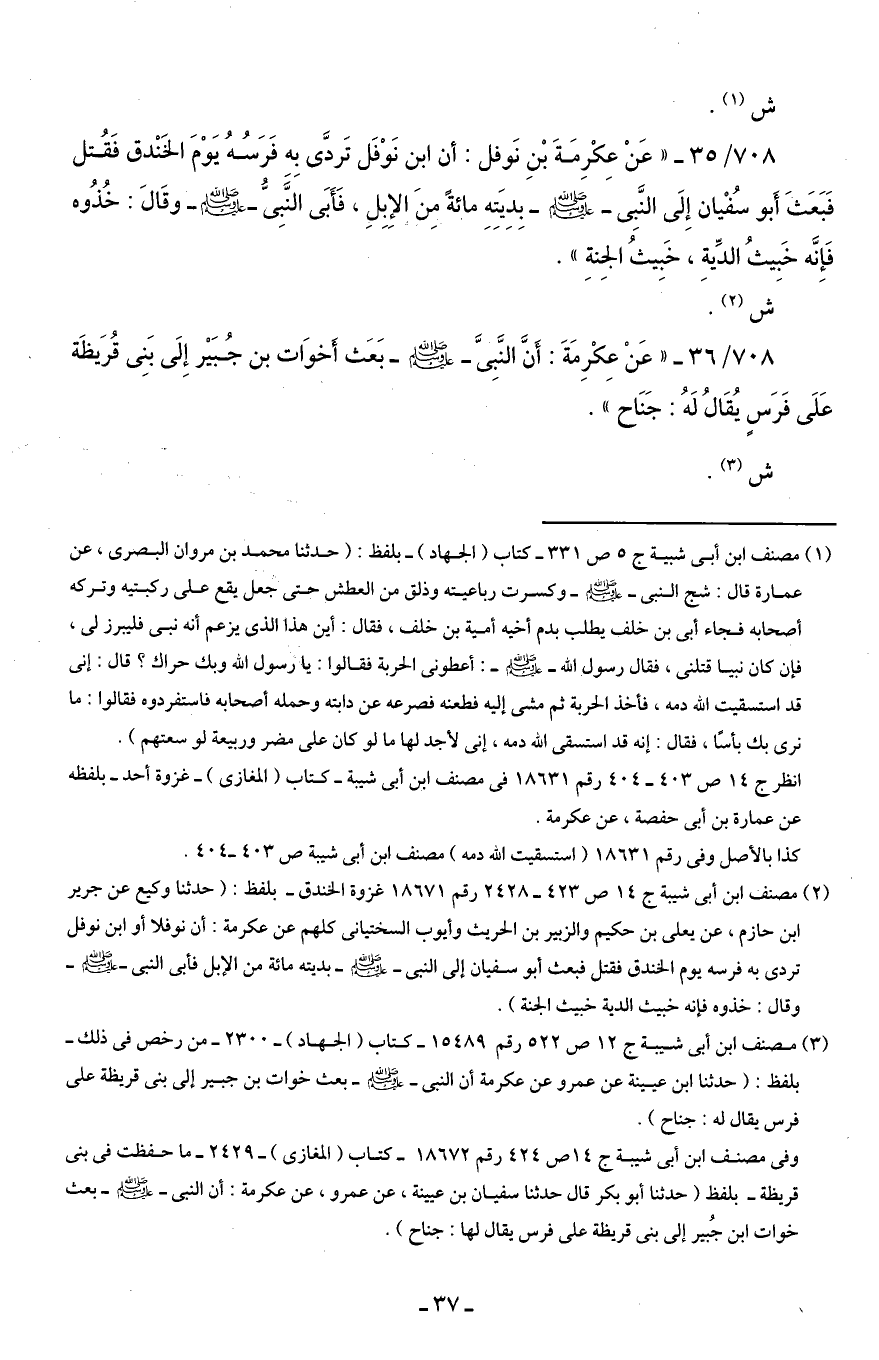 ش (١) .
٧٠٨/ ٣٥ ـ « عَنْ عِكْرِمَةَ بْنِ نَوفل : أن ابن نَوْفَل تَردَّى بِهِ فَرَسُهُ يَوْمَ الخَنْدق فَقُتل
فَبَعَثَ أَبو سُفْيان إِلَى النَّبى ـ ﷺ ـ بِدِيَتِهِ مائةً مِنَ الإِبِلِ ، فَأَبَى النَّبىُّ ـ ﷺ ـ وقَالَ : خُذُوه
فَإِنَّه خَبِيثُ الدِّيةِ ، خَبِيثُ الجنةِ » .
ش (٢) .
٧٠٨/ ٣٦ ـ « عَنْ عِكْرِمَةَ : أَنَّ النَّبِىَّ ـ ﷺ ـ بَعَث أَخوَات بن جُبَيْر إِلَى بَنِى قُرَيظَة
عَلَى فَرَسٍ يُقَالُ لَهُ : جَنَاح » .
ش (٣) .
(١) مصنف ابن أبى شيبة ج ٥ ص ٣٣١ ـ كتاب ( الجهاد ) ـ بلفظ : ( حدثنا محمد بن مروان البصرى ، عن
عمارة قال : شج النبى ـ ﷺ ـ وكسرت رباعيته وذلق من العطش حتى جعل يقع على ركبتيه وتركه
أصحابه فجاء أبى بن خلف يطلب بدم أخيه أمية بن خلف ، فقال : أين هذا الذى يزعم أنه نبى فليبرز لى ،
فإن كان نبيا قتلنى ، فقال رسول الله ـ ﷺ ـ : أعطونى الحربة فقالوا : يا رسول الله وبك حراك ؟ قال : إنى
قد استسقيت الله دمه ، فأخذ الحربة ثم مشى إليه فطعنه فصرعه عن دابته وحمله أصحابه فاستفردوه فقالوا : ما
نرى بك بأسًا ، فقال : إنه قد استسقى الله دمه ، إنى لأجد لها ما لو كان على مضر وربيعة لو سعتهم ) .
انظر ج ١٤ ص ٤٠٣ ـ ٤٠٤ رقم ١٨٦٣١ فى مصنف ابن أبى شيبة ـ كتاب ( المغازى ) ـ غزوة أحد ـ بلفظه
عن عمارة بن أبى حفصة ، عن عكرمة .
كذا بالأصل وفى رقم ١٨٦٣١ ( استسقيت الله دمه ) مصنف ابن أبى شيبة ص ٤٠٣ ـ ٤٠٤ .
(٢) مصنف ابن أبى شيبة ج ١٤ ص ٤٢٣ ـ ٢٤٢٨ رقم ١٨٦٧١ غزوة الخندق ـ بلفظ : ( حدثنا وكيع عن جرير
ابن حازم ، عن يعلى بن حكيم والزبير بن الحريث وأيوب السختيانى كلهم عن عكرمة : أن نوفلا أو ابن نوفل
تردى به فرسه يوم الخندق فقتل فبعث أبو سفيان إلى النبى ـ ﷺ ـ بديته مائة من الإبل فأبى النبى ـ ﷺ ـ
وقال : خذوه فإنه خبيث الدية خبيث الجنة ) .
(٣) مصنف ابن أبى شيبة ج ١٢ ص ٥٢٢ رقم ١٥٤٨٩ ـ كتاب ( الجهاد ) ـ ٢٣٠٠ ـ من رخص فى ذلك ـ
بلفظ : ( حدثنا ابن عيينة عن عمرو عن عكرمة أن النبى ـ ﷺ ـ بعث خوات بن جبير إلى بنى قريظة على
فرس يقال له : جناح ) .
وفى مصنف ابن أبى شيبة ج ١٤ ص ٤٢٤ رقم ١٨٦٧٢ ـ كتاب ( المغازى ) ـ ٢٤٢٩ ـ ما حفظت فى بنى
قريظة ـ بلفظ ( حدثنا أبو بكر قال حدثنا سفيان بن عيينة ، عن عمرو ، عن عكرمة : أن النبى ـ ﷺ ـ بعث
خوات ابن جُبير إلى بنى قريظة على فرس يقال لها : جناح ) .
ـ ٣٧ ـ